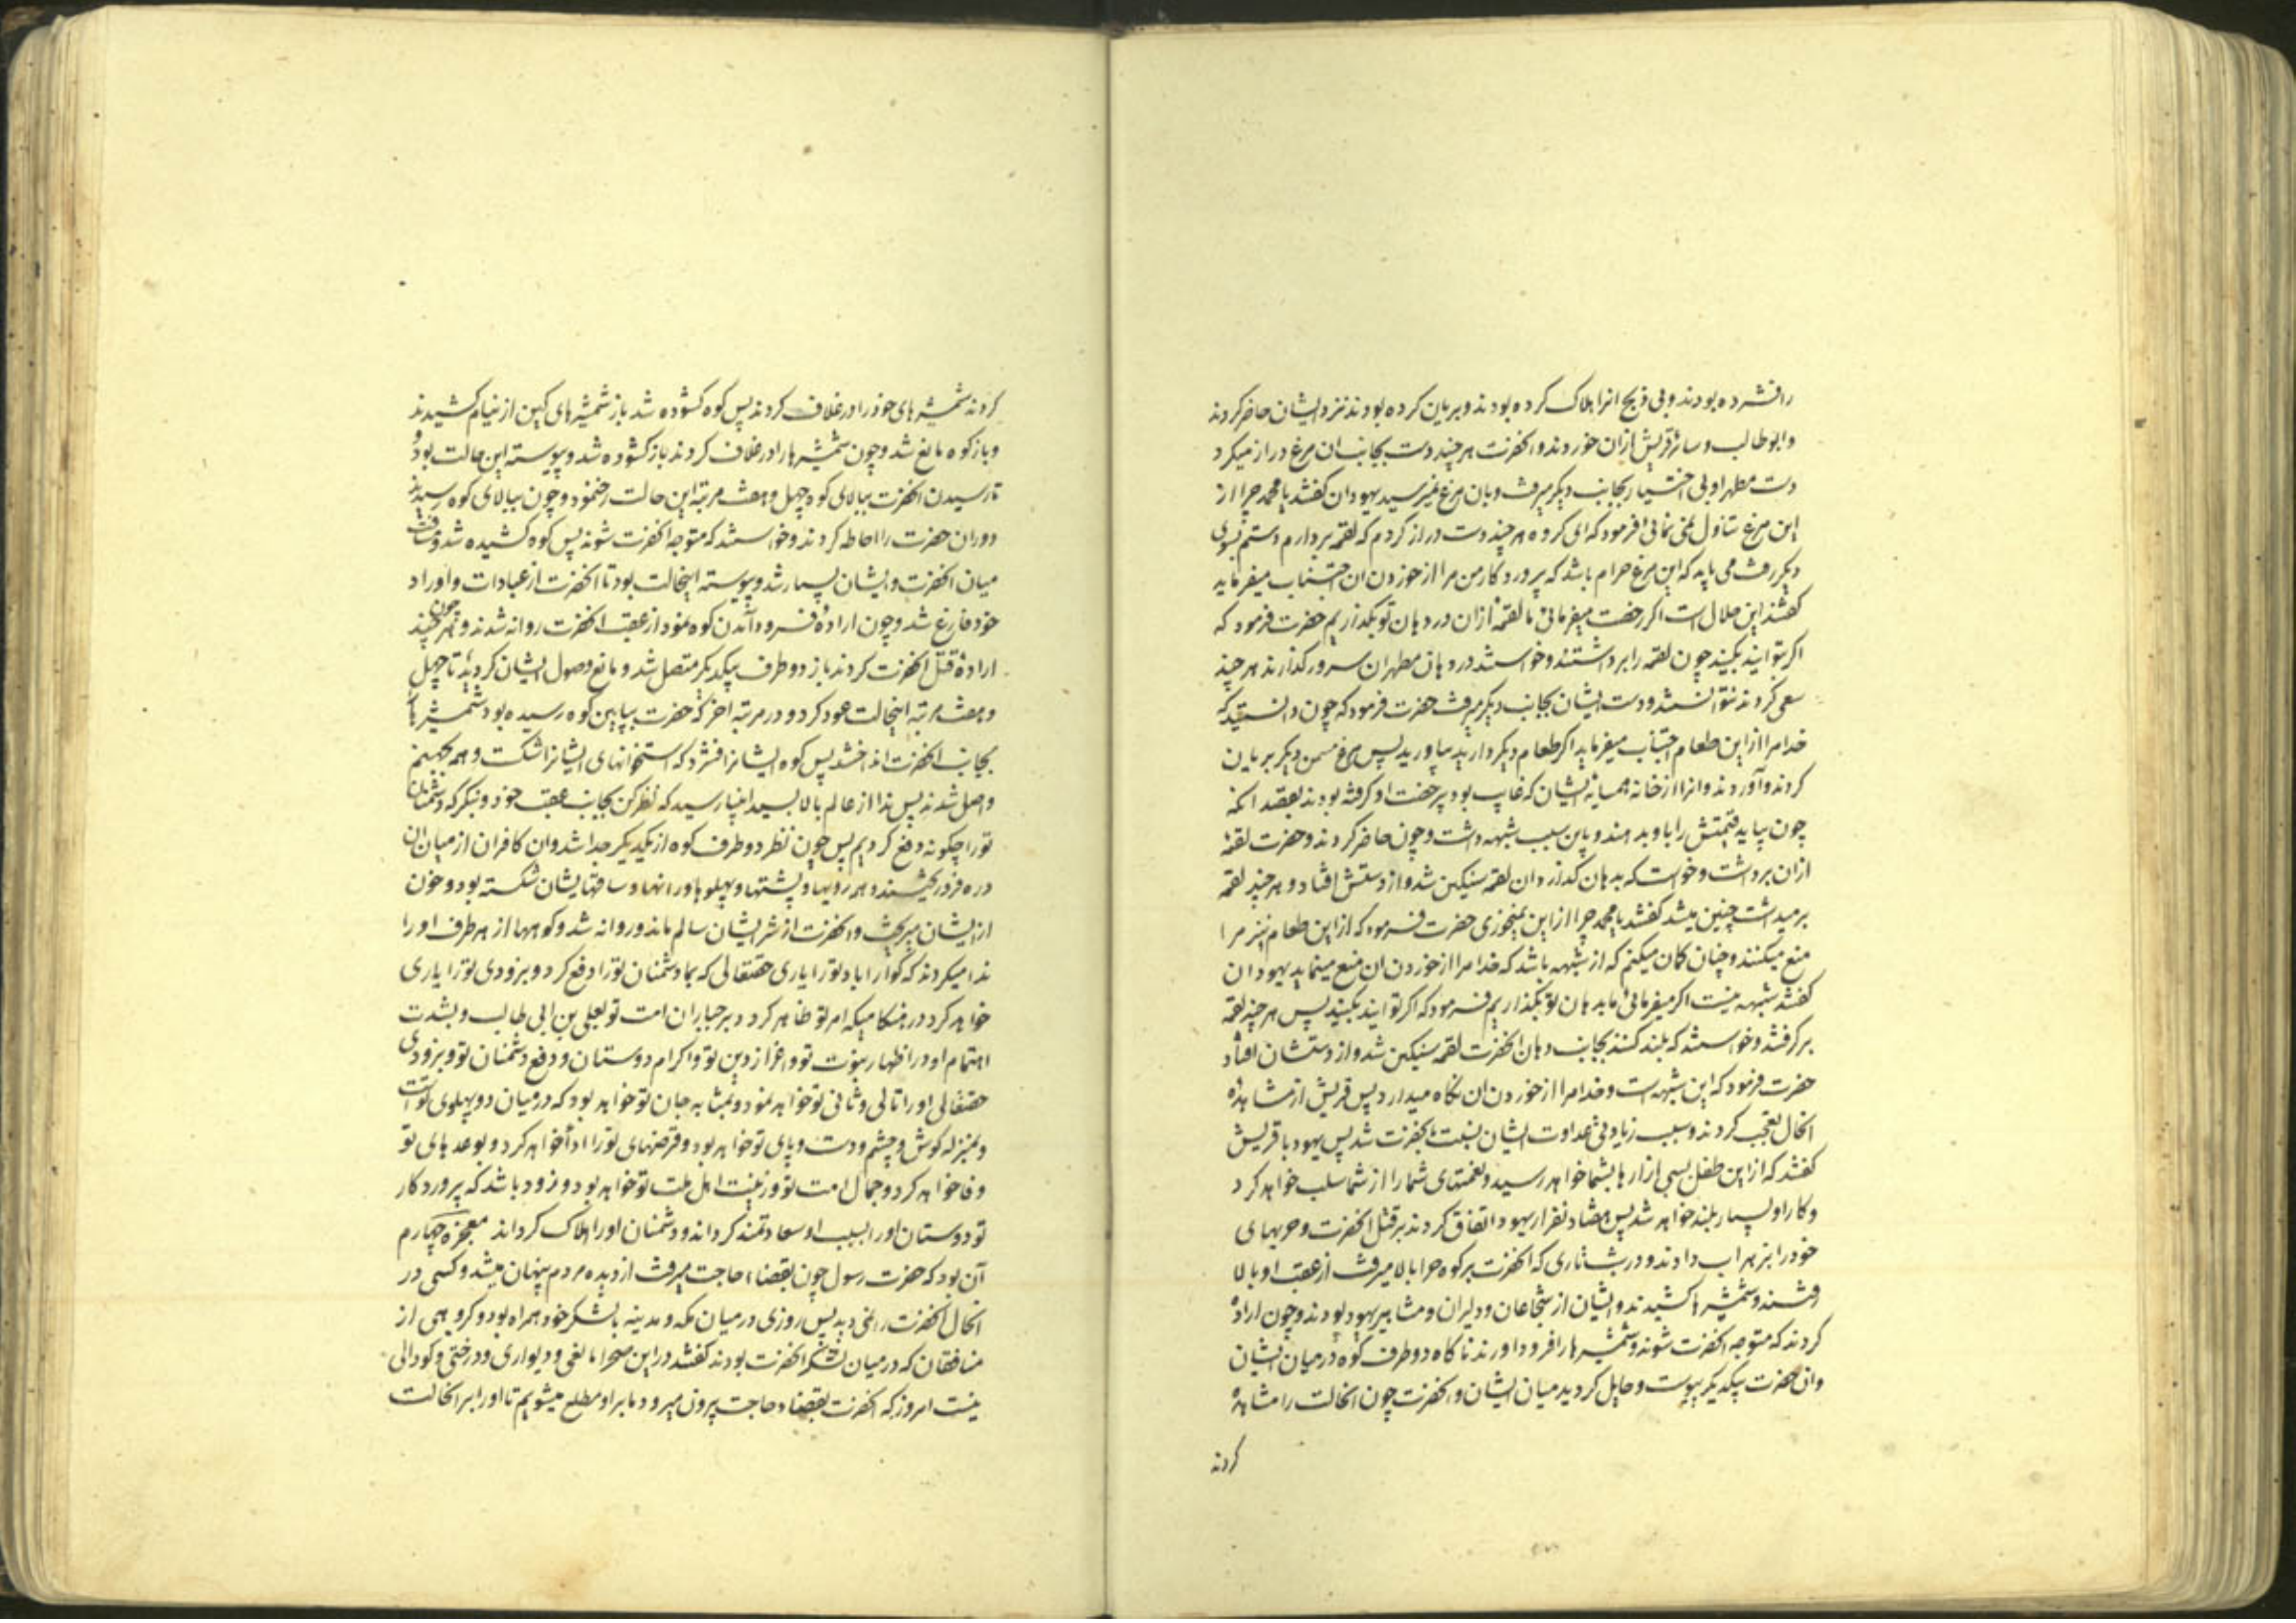 رافشرده بودند و بی ذبح انرا هلاک کرده بودند و بریان کرده بودند نزد ایشان حاضر کردند
و ابوطالب و سائر قریش ازان خوردند و انحضرت هر چند دست بجانب ان مرغ دراز میکرد
دست مطهر او بی اختیار بجانب دیگر میرفت و بان مرغ نمیرسید یهودان گفتند یا محمد چرا از
این مرغ تناول نمی نمائی فرمود که ای گروه هر چند دست دراز کردم که لقمه بردارم دستم بسوی
دیگر رفت می باید که این مرغ حرام باشد که پروردگار من مرا از خوردن ان اجتناب میفرماید
گفتند این حلال است اگر رخصت میفرمائی ما لقمهٔ ازان در دهان تو بگذاریم حضرت فرمود که
اگر توانید بکنید چون لقمه را برداشتند و خواستند در دهان مطهر ان سرور گذارند هر چند
سعی کردند نتوانستند و دست ایشان بجانب دیگر میرفت حضرت فرمود که چون دانستید که
خدا مرا از این طعام اجتناب میفرماید اگر طعام دیگر دارید بیاورید پس مرغ مسمن دیگر بریان
کردند و آوردند و انرا از خانه همسایه ایشان که غایب بود بی رخصت او گرفته بودند بقصد انکه
چون بیاید قیمتش را باو بدهند و باین سبب شبهه داشت و چون حاضر کردند و حضرت لقمهٔ
ازان برداشت و خواست که بدهان گذارد ان لقمه سنگین شد و از دستش افتاد و هر چند لقمه
برمیداشت چنین میشد گفتند یا محمد چرا از این نمیخوری حضرت فرمود که از این طعام نیز مرا
منع میکنند و چنان گمان میکنم که از شبهه باشد که خدا مرا از خوردن ان منع مینماید یهودان
گفتند شبهه نیست اگر میفرمائی ما بدهان تو بگذاریم فرمود که اگر توانید بکنید پس هر چند لقمه
برگرفتند و خواستند که بلند کنند بجانب دهان انحضرت لقمه سنگین شد و از دستشان افتاد
حضرت فرمود که این شبهه است و خدا مرا از خوردن ان نگاه میدارد پس قریش از مشاهدهٔ
انحال تعجب کردند و سبب زیادتی عداوت ایشان نسبت بانحضرت شد پس یهود با قریش
گفتند که از این طفل بسی ازارها بشما خواهد رسید و نعمتهای شما را از شما سلب خواهد کرد
و کار او بسیار بلند خواهد شد پس هفتاد نفر از یهود اتفاق کردند بر قتل انحضرت و حربهای
خود را بزهراب دادند و در شب تاری که انحضرت بر کوه حرا بالا میرفت از عقب او بالا
رفتند و شمشیرها کشیدند و ایشان از شجاعان و دلیران و مشاهیر یهود بودند و چون ارادهٔ
کردند که متوجه انحضرت شوند و شمشیرها را فرود اورند ناگاه دو طرف کوه در میان ایشان
و ان حضرت بیکدیگر پیوست و حایل گردید میان ایشان و انحضرت چون انحالت را مشاهده
کردند
کردند شمشیرهای خود را در غلاف کردند پس کوه گشوده شد باز شمشیرهای کین از نیام کشیدند
و باز کوه مانع شد و چون شمشیرها را در غلاف کردند باز گشوده شد و پیوسته این حالت بود و
تا رسیدن انحضرت ببالای کوه چهل و هفت مرتبه این حالت رخ نمود و چون ببالای کوه رسیدند
دوران حضرت را احاطه کردند و خواستند که متوجه انحضرت شوند پس کوه کشیده شد و مسافت
میان انحضرت و ایشان بسیار شد و پیوسته اینحالت بود تا انحضرت از عبادات و اوراد
خود فارغ شد و چون ارادهٔ فرود آمدن کوه نمود از عقب انحضرت روانه شدند و چون هر چند
ارادهٔ قتل انحضرت کردند باز دو طرف بیکدیگر متصل شد و مانع وصول ایشان گردید تا چهل
و هفت مرتبه اینحالت عود کرد و در مرتبه اخر که حضرت بپایین کوه رسیده بود شمشیرها
بجانب انحضرت انداختند پس کوه ایشانرا فشرد که استخوانهای ایشانرا شکست و همه بجهنم
واصل شدند پس ندا از عالم بالا بسید انبیا رسید که نظر کن بجانب عقب خود و بنگر که دشمنان
تو را چگونه دفع کردیم پس چون نظر کرد دو طرف کوه از یکدیگر جدا شد و ان کافران از میان ان
دره فرو ریختند و همه رویها و پشتها و پهلوها و رانها و ساقهایشان شکسته بود و خون
از ایشان میریخت و انحضرت از شر ایشان سالم ماند و روانه شد و کوهها از هر طرف او را
ندا میکردند که گوارا باد تو را یاری حقتعالی که بما دشمنان تو را دفع کرد و بزودی تو را یاری
خواهد کرد در هنگامیکه امر تو ظاهر گردد بر جباران امت تو بعلی بن ابی طالب و بشدت
اهتمام او در اظهار نبوت تو و اعزاز دین تو و اکرام دوستان و دفع دشمنان تو و بزودی
حقتعالی او را تالی و ثانی تو خواهد نمود و بمثابه جان تو خواهد بود که در میان دو پهلوی تو است
و بمنزله گوش و چشم و دست و پای تو خواهد بود و قرضهای تو را ادا خواهد کرد و بوعدهای تو
وفا خواهد کرد و جمال امت تو و زینت اهل ملت تو خواهد بود و زود باشد که پروردگار
تو دوستان او را بسبب او سعادتمند گرداند و دشمنان او را هلاک گرداند معجزه چهارم
آن بود که حضرت رسول چون بقضاء حاجت میرفت از دیده مردم پنهان میشد و کسی در
انحال انحضرت را نمی دید پس روزی در میان مکه و مدینه با لشکر خود همراه بود و گروهی از
منافقان که در میان لشکر انحضرت بودند گفتند در این صحرا مانعی و دیواری و درختی و گودالی
نیست امروز که انحضرت بقضاء حاجت بیرون میرود ما بر او مطلع میشویم تا او را بر انحالت